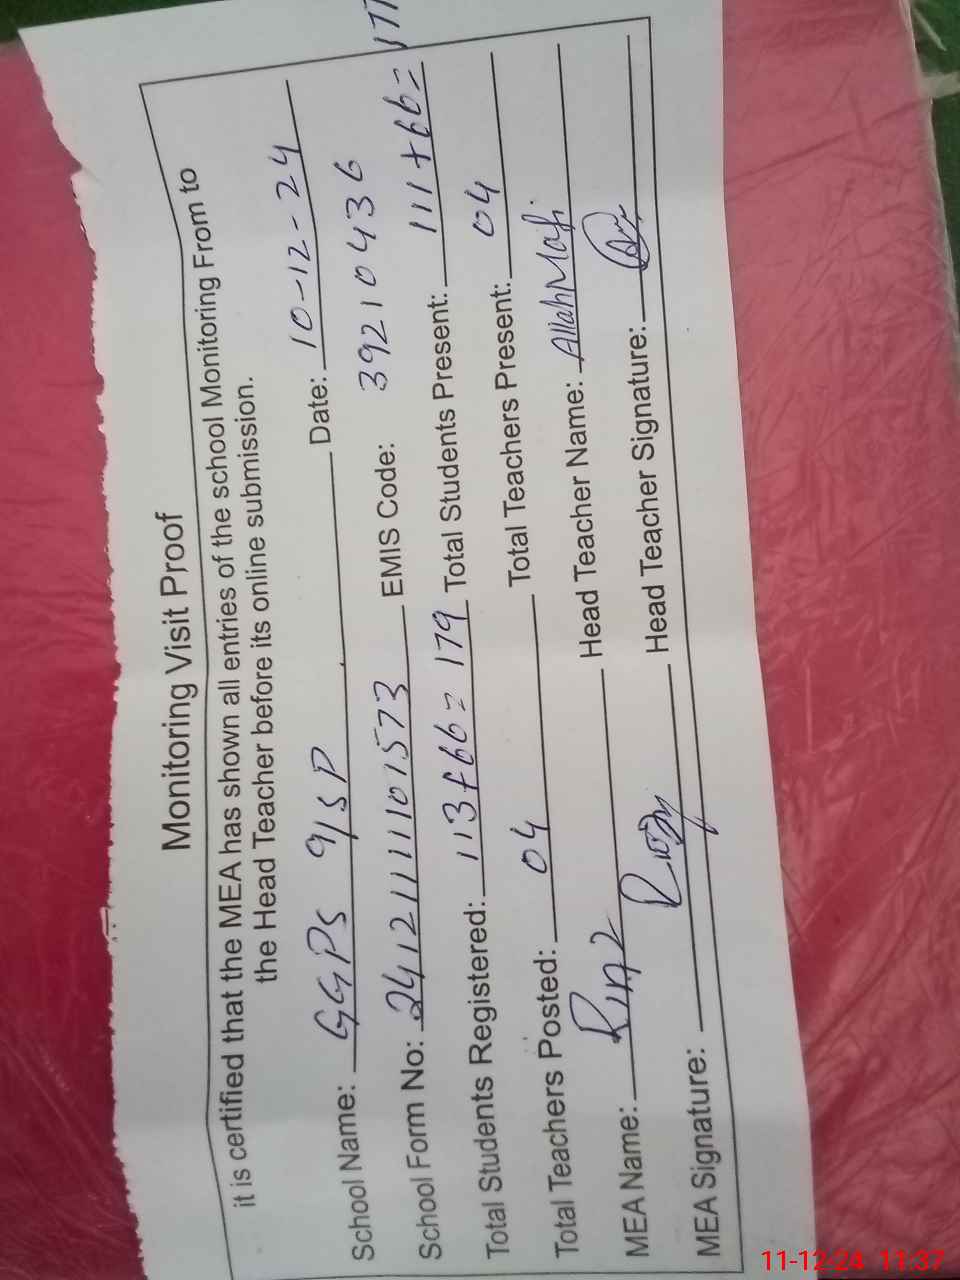 Monitoring Visit Proof
it is certified that the MEA has shown all entries of the school Monitoring From to
the Head Teacher before its online submission.
School Name: GGPS 9/SP Date: 10-12-24
School Form No: 2412111101573 EMIS Code: 39210436
Total Students Registered: 113+66=179 Total Students Present: 111+66=177
Total Teachers Posted: 04 Total Teachers Present: 04
MEA Name: Head Teacher Name: Allah Mafi
MEA Signature: Head Teacher Signature:
11-12-24 11:37